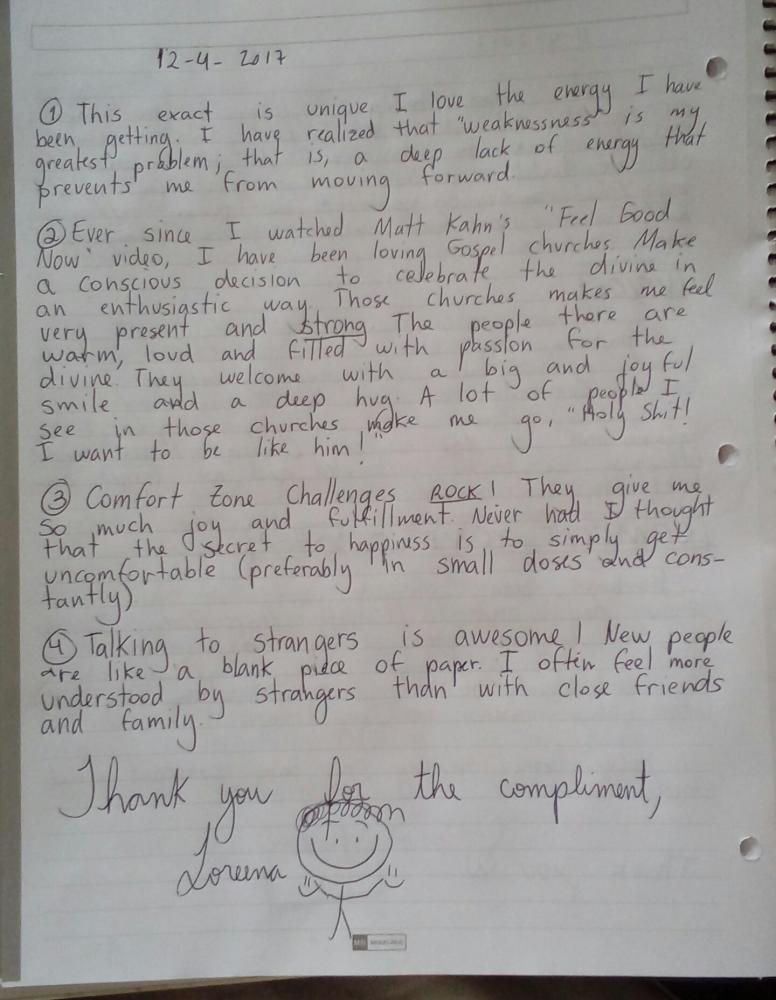 12-4-2017
① This exact is unique. I love the energy I have
been getting. I have realized that "weaknessness" is my
greatest problem; that is, a deep lack of energy that
prevents me from moving forward.
② Ever since I watched Matt Kahn's "Feel Good
Now" video, I have been loving Gospel churches. Make
a conscious decision to celebrate the divine in
an enthusiastic way. Those churches makes me feel
very present and strong. The people there are
warm, loud and filled with passion for the
divine. They welcome with a big and joyful
smile and a deep hug. A lot of people I
see in those churches make me go, "Holy Shit!
I want to be like him!"
③ Comfort Zone Challenges ROCK! They give me
so much joy and fulfillment. Never had I thought
that the secret to happiness is to simply get
uncomfortable (preferably in small doses and cons-
tantly)
④ Talking to strangers is awesome! New people
are like a blank piece of paper. I often feel more
understood by strangers than with close friends
and family.
Thank you for the compliment,
Loreena